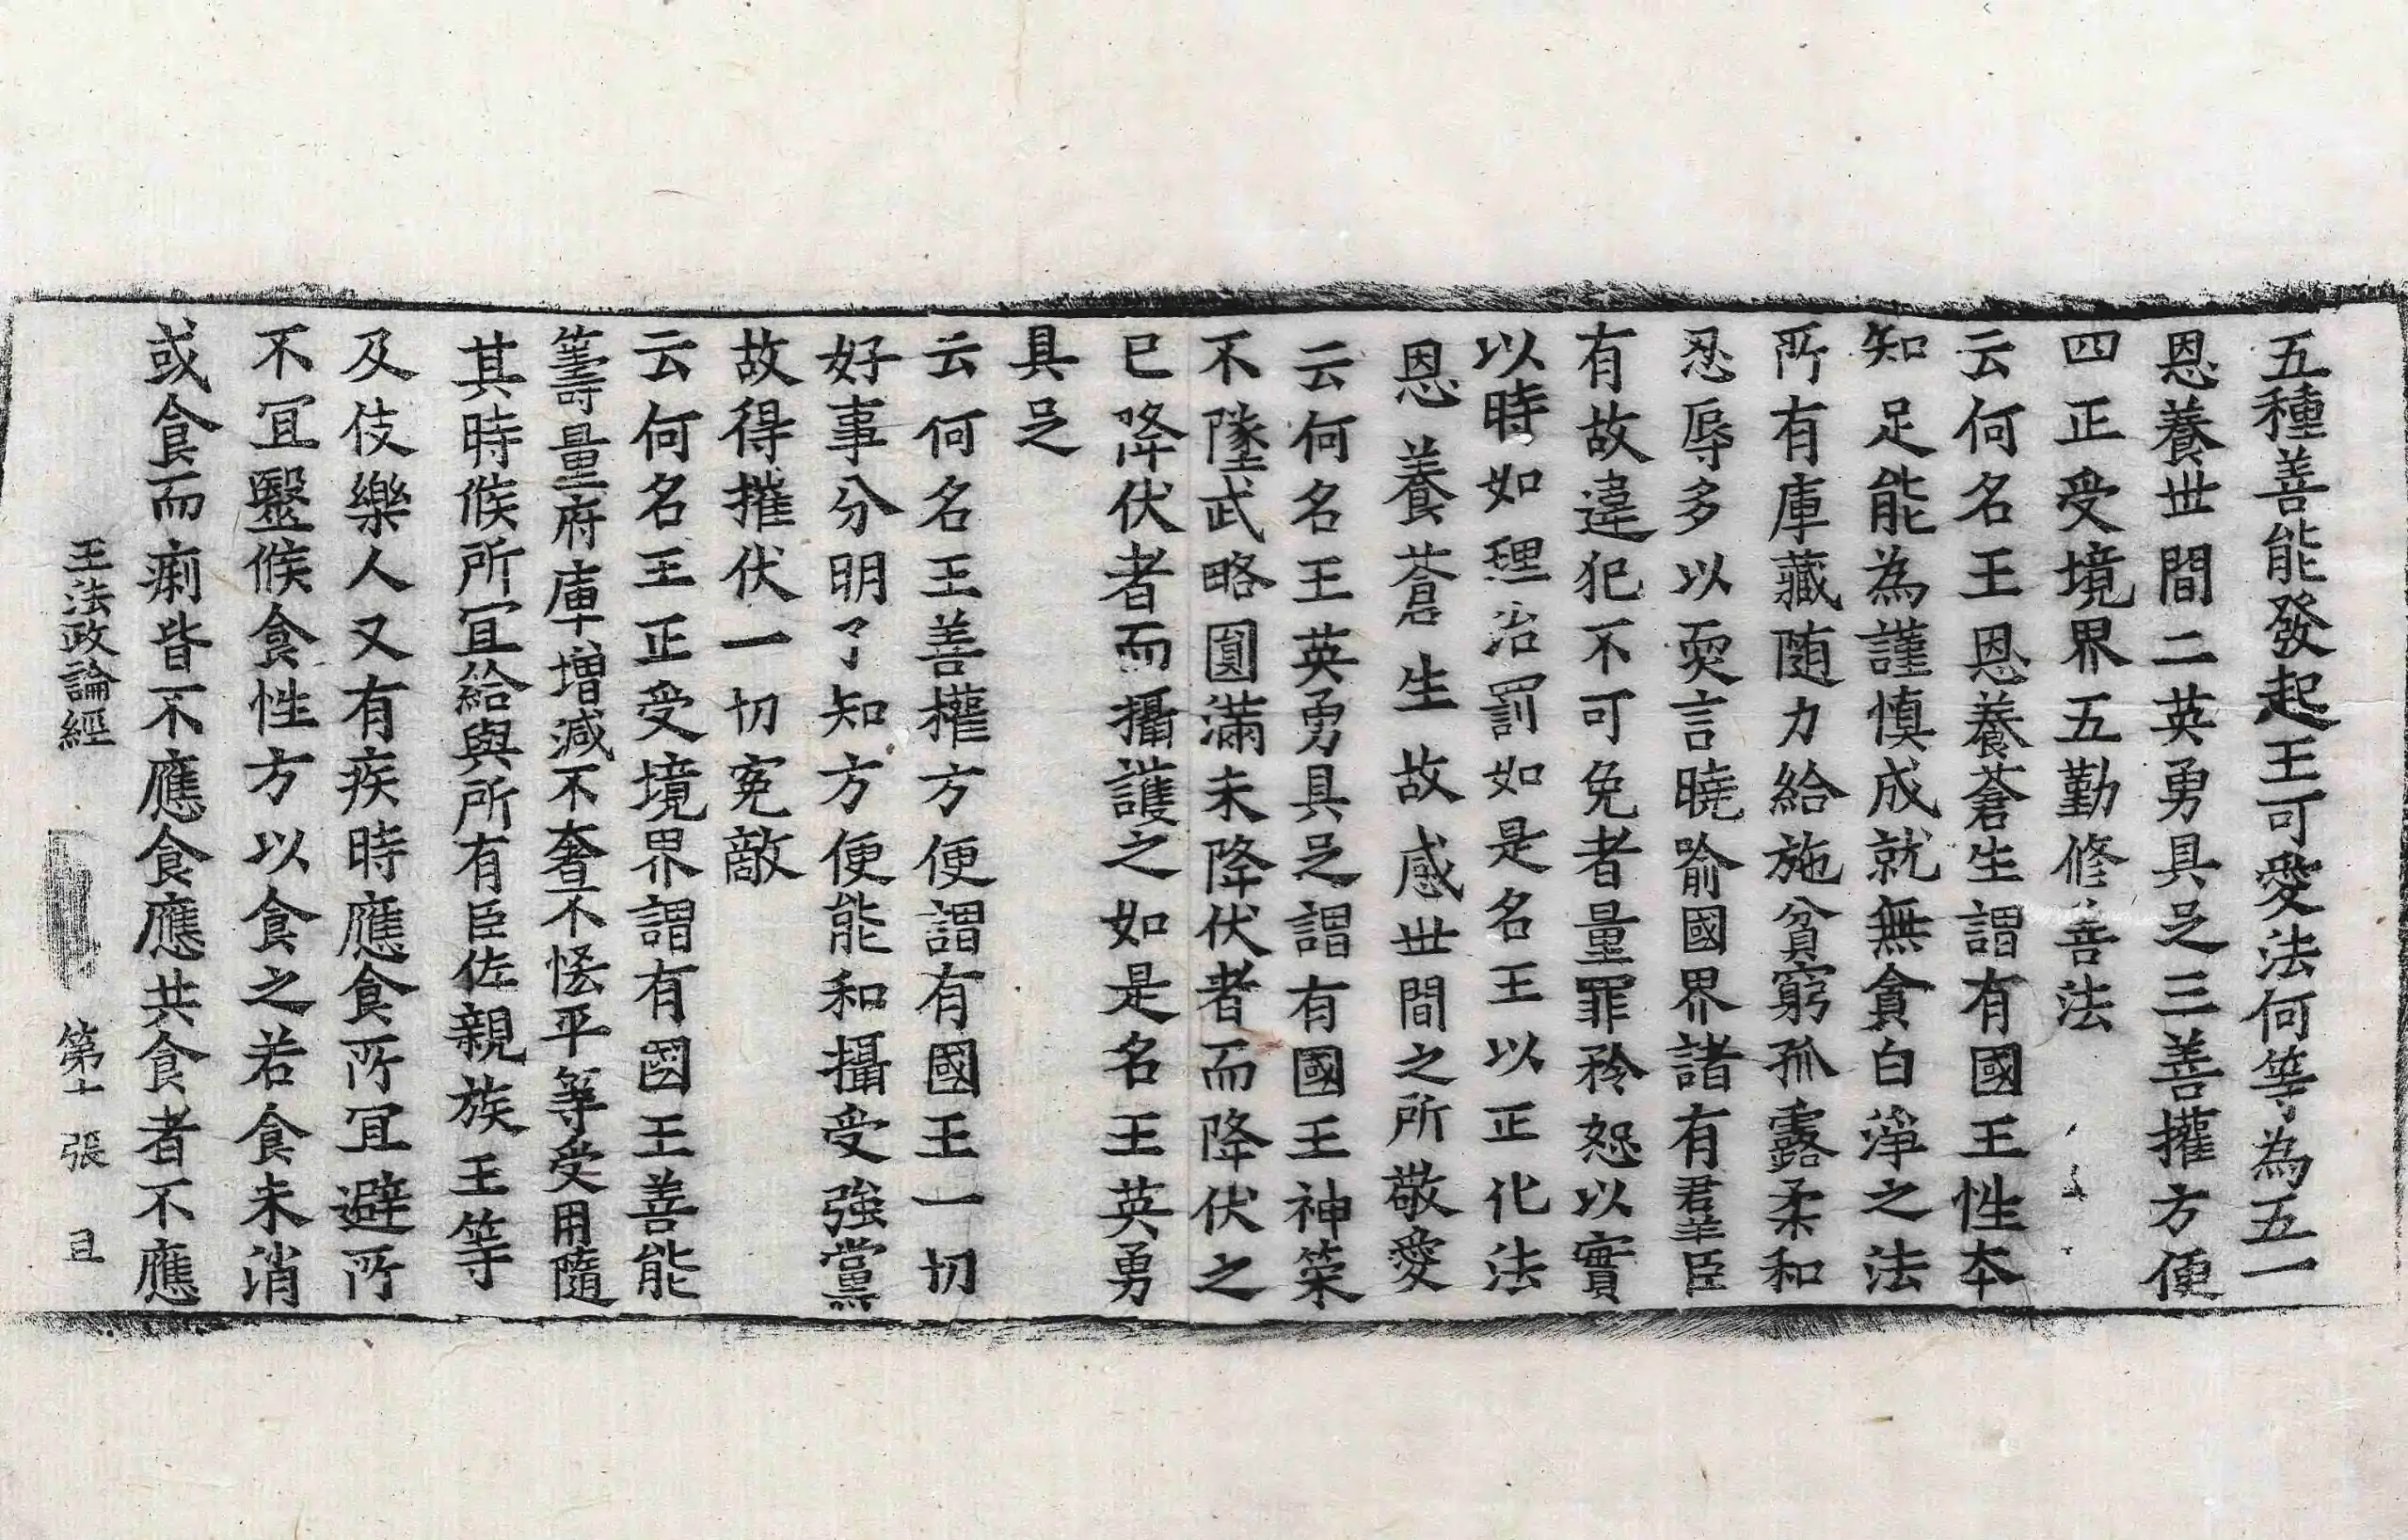 五種善能發起王可愛法何等為五一
恩養世間二英勇具足三善攉方便
四正受境界五勤修善法
云何名王恩養蒼生謂有國王性本
知足能為謹慎成就無貪白淨之法
所有庫藏随力給施貧窮孤露柔和
忍辱多以耎言曉喻國界諸有羣臣
有故違犯不可免者量罪矜恕以實
以時如理治罰如是名王以正化法
恩養蒼生故感世間之所敬愛
云何名王英勇具足謂有國王神策
不墜武略圓滿未降伏者而降伏之
已降伏者而攝護之如是名王英勇
具足
云何名王善攉方便謂有國王一切
好事分明了知方便能和攝受強黨
故得摧伏一切寃敵
云何名王正受境界謂有國王善能
籌量府庫增減不奢不恡平等受用隨
其時候所冝給與所有臣佐親族王等
及伎樂人又有疾時應食所冝避所
不冝毉候食性方以食之若食未消
或食而痢皆不應食應共食者不應
王法政論經 第十張 且